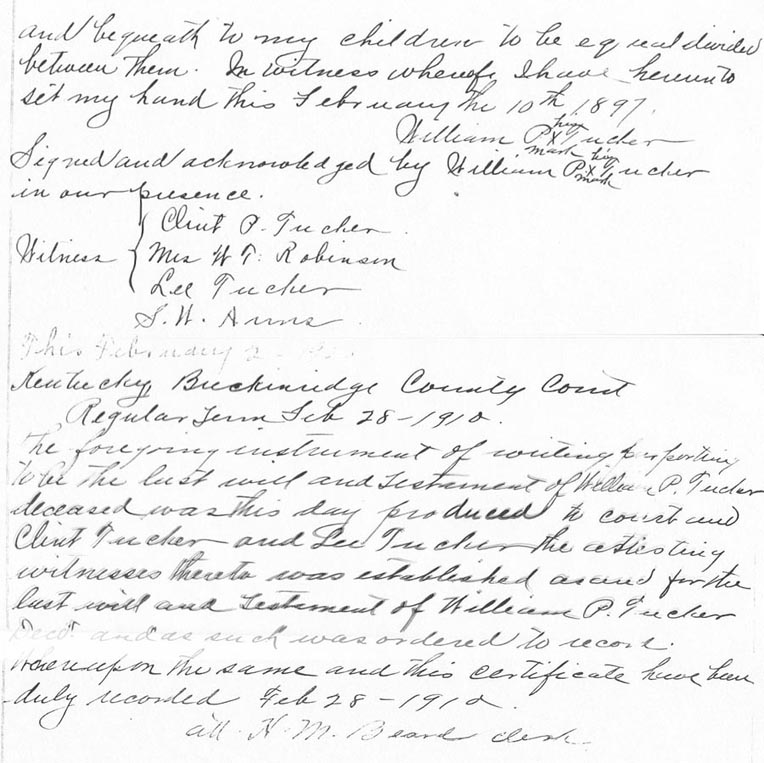 and bequeath to my children to be equal divided
between them. In witness whereof, I have hereunto
set my hand this February the 10th 1897.
his
William P X Tucker
mark
Signed and acknowledged by William P. X Tucker
his
mark
in our presence.
Clint P. Tucker
Witness { Mrs W. T. Robinson
Lee Tucker
S. W. Anns
This February 2
Kentucky Breckinridge County Court
Regular Term Feb 28-1910.
The foregoing instrument of writing purporting
to be the last will and Testament of William P. Tucker
deceased was this day produced to court and
Clint Tucker and Lee Tucker the attesting
witnesses thereto was established as and for the
last will and Testament of William P. Tucker
Decd. and as such was ordered to record.
Whereupon the same and this certificate have been
duly recorded Feb 28-1910.
att. H. M. Beard clerk